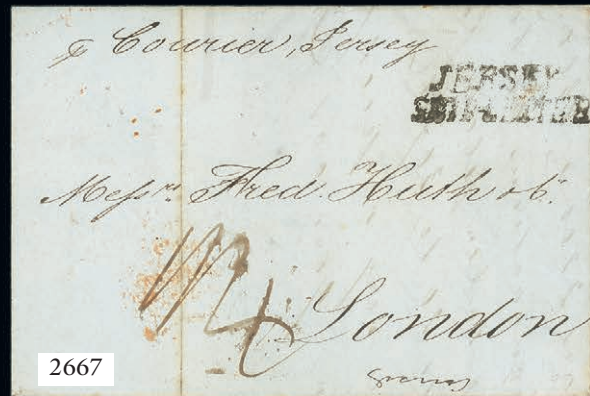 p Courier, Jersey
JERSEY
SHIP-LETTER
Messrs Fred. Huth & Co.
London
2667